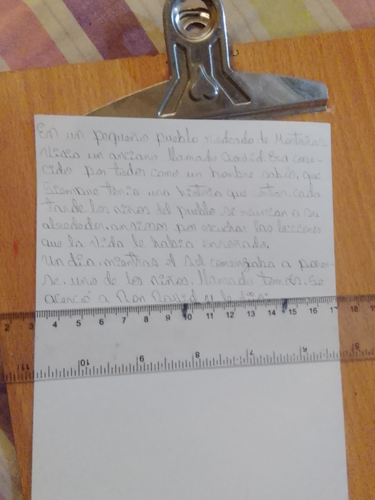 En un pequeño pueblo rodeado de Montañas
Vivia un anciano llamado David. Era cono-
cido por todos como un hombre sabio, que
siempre tenia una historia que contar. cada
tarde los niños del pueblo se reunian a su
alrededor, ansiosos por escuchar las lecciones
que la vida le habia enseñado.
Un dia, mientras el sol comenzaba a poner-
se, uno de los niños, llamado tomás, se
acercó a Don David y le dijo:
2 3 4 5 6 7 8 9 10 11 12 13 14 15 16 17 18
11 10 9 8 7 6